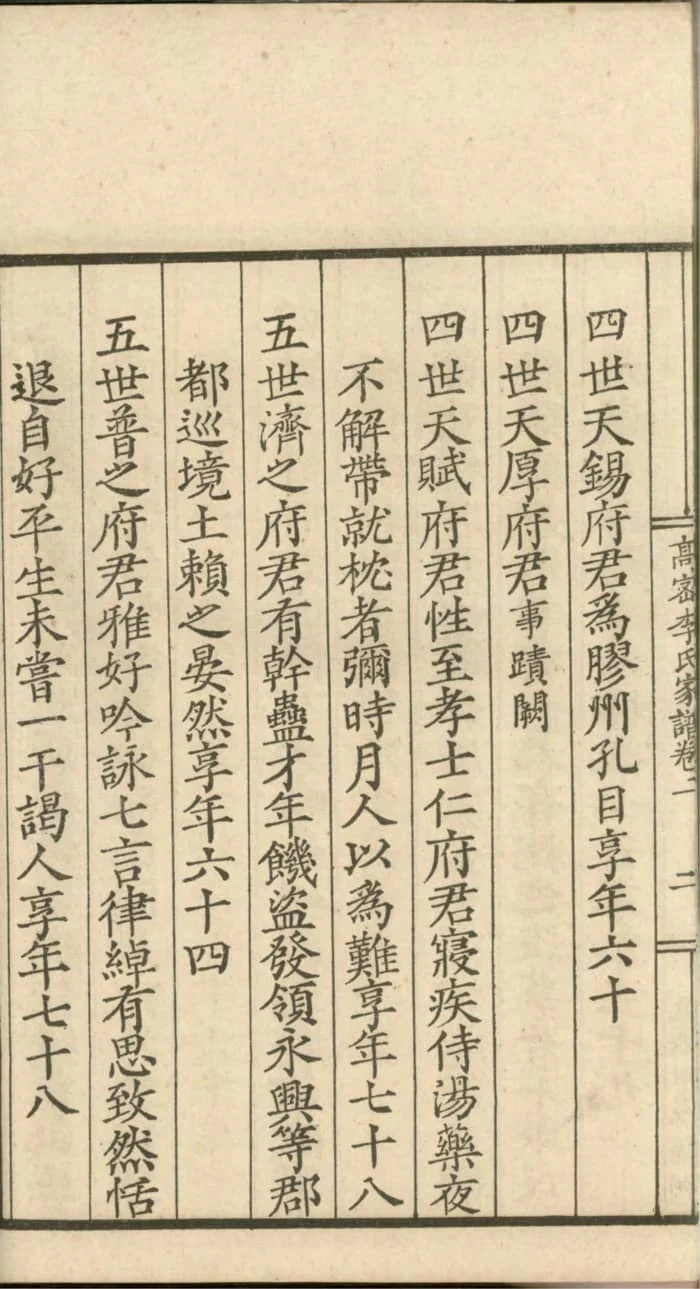 高密李氏家譜卷二 二
四世天錫府君為膠州孔目享年六十
四世天厚府君事蹟闕
四世天賦府君性至孝士仁府君寢疾侍湯藥夜
不解帶就枕者彌時月人以為難享年七十八
五世濟之府君有幹蠱才年饑盜發領永興等郡
都巡境土賴之晏然享年六十四
五世普之府君雅好吟詠七言律綽有思致然恬
退自好平生未嘗一干謁人享年七十八